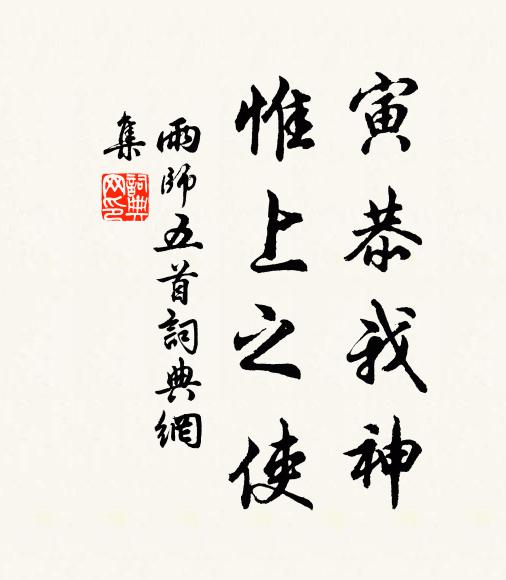 寅恭我神
惟上之使
雨師五首詞典網
集
詞典
网印